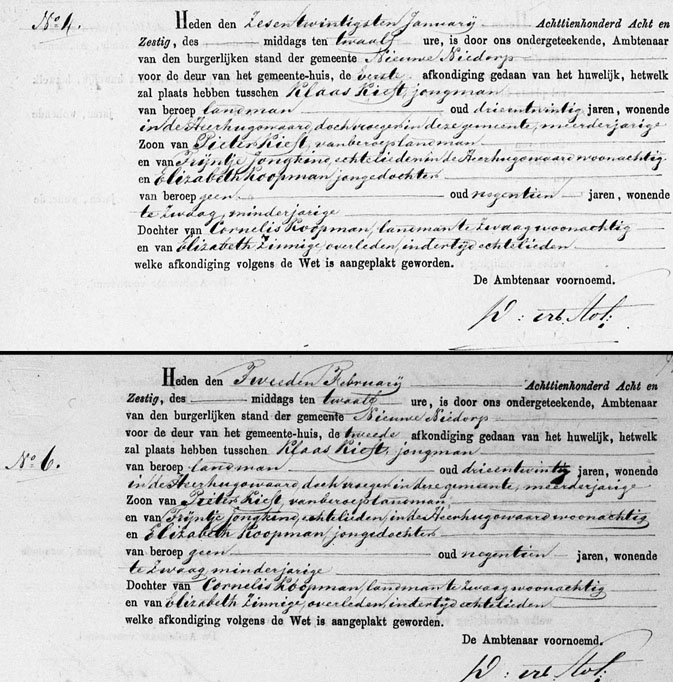 No 4.
Heden den Zesentwintigsten January Achttienhonderd Acht en
Zestig, des middags ten twaalf ure, is door ons ondergeteekende, Ambtenaar
van den burgerlijken stand der gemeente Nieuwe Niedorp
voor de deur van het gemeente-huis, de eerste afkondiging gedaan van het huwelijk, hetwelk
zal plaats hebben tusschen Klaas Kiest, jongman
van beroep landman oud drieentwintig jaren, wonende
in de Heerhugowaard doch vroeger in deze gemeente, meerderjarige
Zoon van Pieter Kiest, van beroep landman
en van Trijntje Jongkind, echtelieden in de Heerhugowaard woonachtig
en Elizabeth Koopman, jongedochter
van beroep geen oud negentien jaren, wonende
te Zwaag, minderjarige
Dochter van Cornelis Koopman, landman te Zwaag woonachtig
en van Elizabeth Zinnige, overleden, indertijd echtelieden
welke afkondiging volgens de Wet is aangeplakt geworden.
De Ambtenaar voornoemd.
No 6.
Heden den Tweeden February Achttienhonderd Acht en
Zestig, des middags ten twaalf ure, is door ons ondergeteekende, Ambtenaar
van den burgerlijken stand der gemeente Nieuwe Niedorp
voor de deur van het gemeente-huis, de tweede afkondiging gedaan van het huwelijk, hetwelk
zal plaats hebben tusschen Klaas Kiest, jongman
van beroep landman oud drieentwintig jaren, wonende
in de Heerhugowaard doch vroeger in deze gemeente, meerderjarige
Zoon van Pieter Kiest, van beroep landman
en van Trijntje Jongkind, echtelieden, in de Heerhugowaard woonachtig
en Elizabeth Koopman, jongedochter
van beroep geen oud negentien jaren, wonende
te Zwaag minderjarige
Dochter van Cornelis Koopman, landman te Zwaag woonachtig
en van Elizabeth Zinnige, overleden, indertijd echtelieden
welke afkondiging volgens de Wet is aangeplakt geworden.
De Ambtenaar voornoemd.